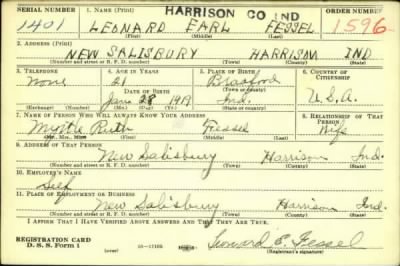 HARRISON CO IND
SERIAL NUMBER 1. NAME (Print) ORDER NUMBER
401 LEONARD EARL FESSEL 1596
(First) (Middle) (Last)
2. ADDRESS (Print)
NEW SALISBURY HARRISON IND
(Number and street or R. F. D. number) (Town) (County) (State)
3. TELEPHONE 4. AGE IN YEARS 5. PLACE OF BIRTH 6. COUNTRY OF CITIZENSHIP
None 21 Bradford
DATE OF BIRTH (Town or county)
Jan 28 1919 Ind. U.S.A.
(Exchange) (Number) (Mo.) (Day) (Yr.) (State or country)
7. NAME OF PERSON WHO WILL ALWAYS KNOW YOUR ADDRESS 8. RELATIONSHIP OF THAT PERSON
Myrtle Ruth Fessel Wife
(Mr., Mrs., Miss) (First) (Middle) (Last)
9. ADDRESS OF THAT PERSON
New Salisbury Harrison Ind.
(Number and street or R. F. D. number) (Town) (County) (State)
10. EMPLOYER'S NAME
Self
11. PLACE OF EMPLOYMENT OR BUSINESS
New Salisbury Harrison Ind.
(Number and street or R. F. D. number) (Town) (County) (State)
I AFFIRM THAT I HAVE VERIFIED ABOVE ANSWERS AND THAT THEY ARE TRUE.
REGISTRATION CARD
D. S. S. Form 1 Leonard E. Fessel
(Registrant's signature)